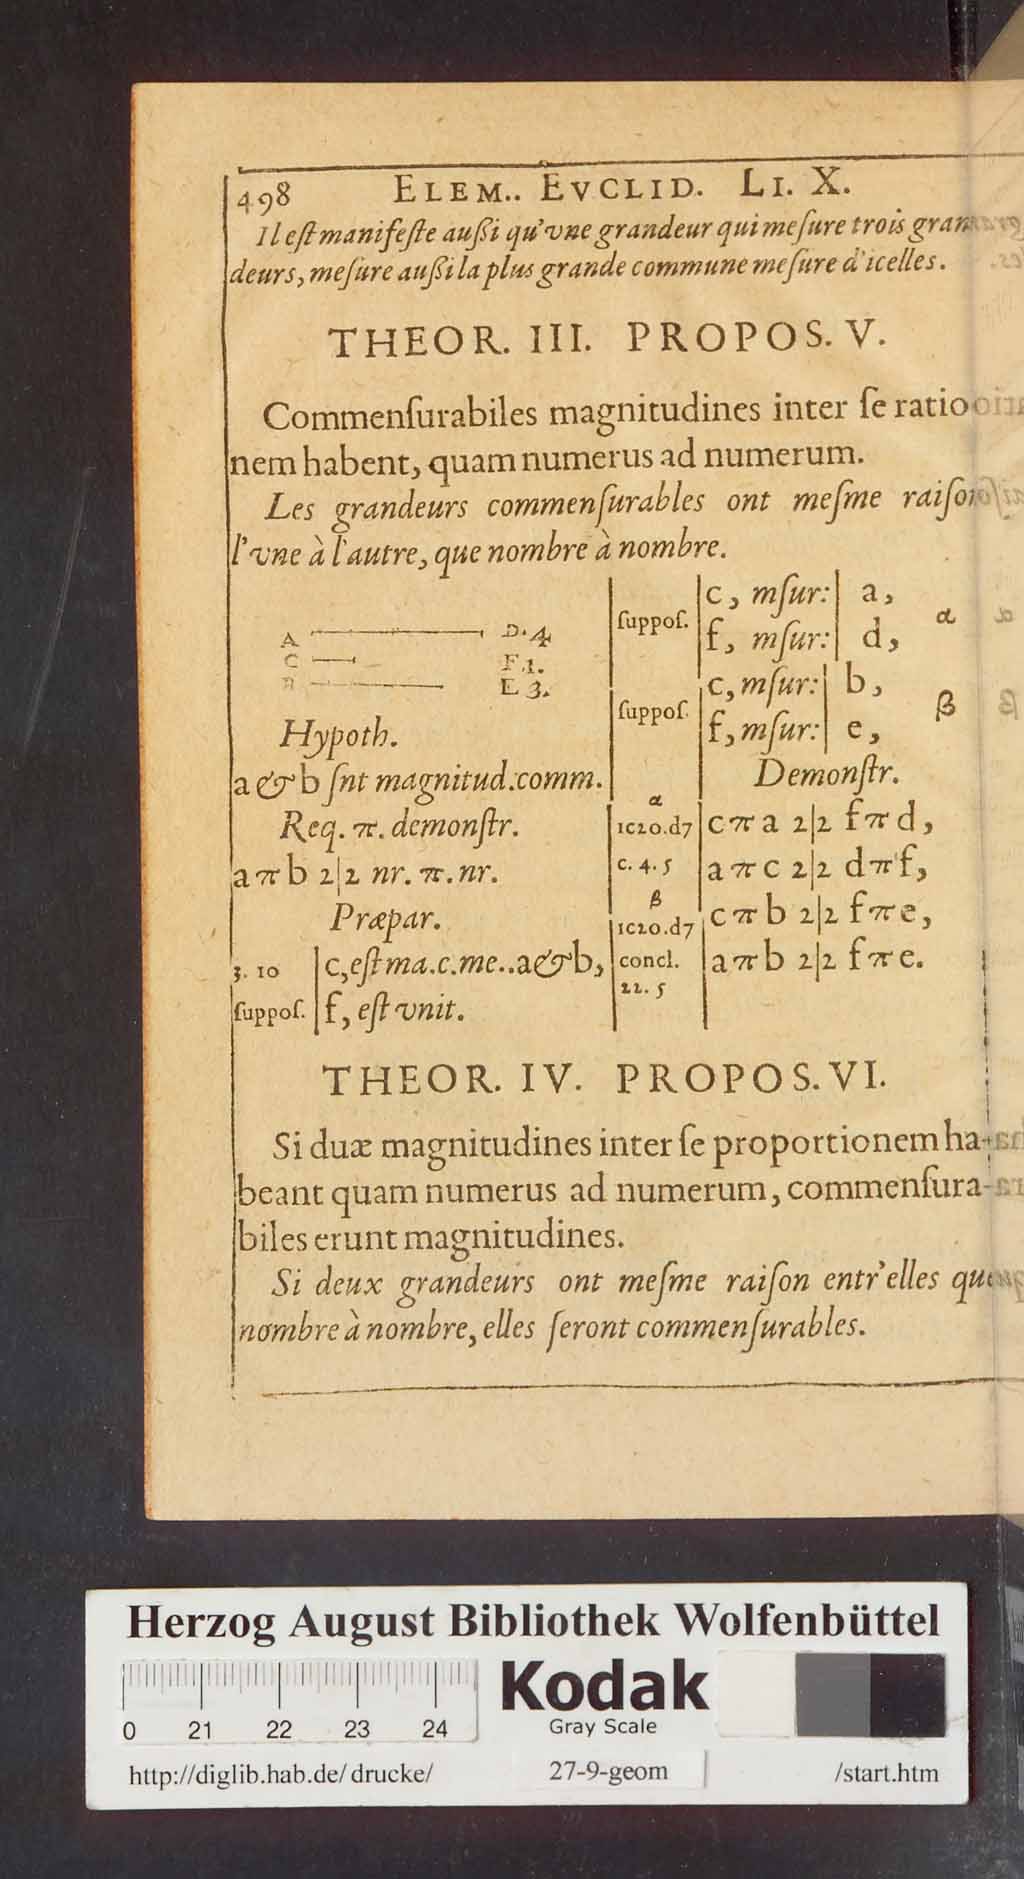 498 ELEM.. EVCLID. LI. X.
Il eſt manifeſte auſſi qu'vne grandeur qui meſure trois gran
deurs, meſure auſſi la plus grande commune meſure d'icelles.
THEOR. III. PROPOS. V.
Commenſurabiles magnitudines inter ſe ratio
nem habent, quam numerus ad numerum.
Les grandeurs commenſurables ont meſme raiſon
l'vne à l'autre, que nombre à nombre.
A D. 4
C F. 1.
B E 3.
Hypoth.
a & b ſnt magnitud. comm.
Req. π. demonſtr.
a π b 2|2 nr. π. nr.
Præpar.
3. 10 | c, eſt ma. c. me.. a & b,
ſuppoſ. | f, eſt vnit.
ſuppoſ. | c, mſur: | a,
f, mſur: | d, α
ſuppoſ. | c, mſur: | b,
f, mſur: | e, β
Demonſtr.
α
1c20. d7 | c π a 2|2 f π d,
c. 4. 5 | a π c 2|2 d π f,
β
1c20. d7 | c π b 2|2 f π e,
concl. | a π b 2|2 f π e.
22. 5
THEOR. IV. PROPOS. VI.
Si duæ magnitudines inter ſe proportionem ha-
beant quam numerus ad numerum, commenſura-
biles erunt magnitudines.
Si deux grandeurs ont meſme raiſon entr'elles que
nombre à nombre, elles ſeront commenſurables.
Herzog August Bibliothek Wolfenbüttel
Kodak
Gray Scale
0 21 22 23 24
http://diglib.hab.de/drucke/ 27-9-geom /start.htm